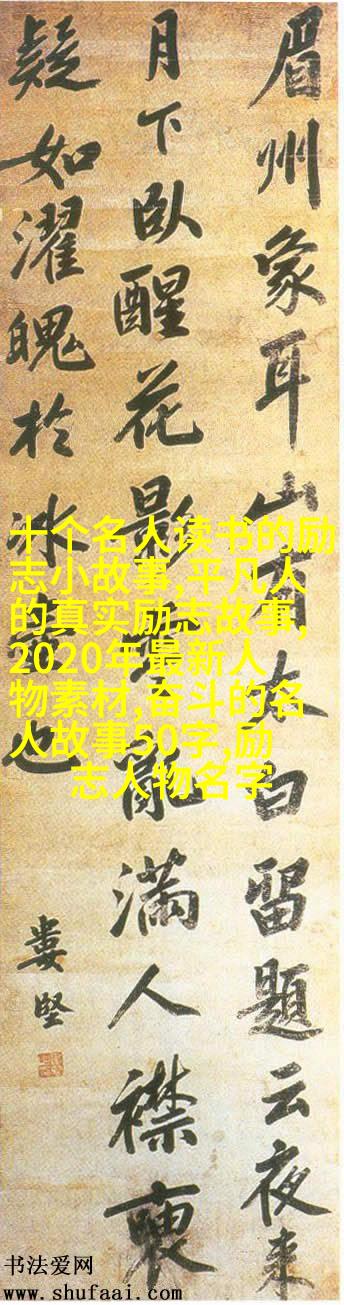 眉州象耳山有太白留題云夜来
月下臥醒花影亂滿人襟
疑如濯魄於冰也
婁堅
十个名人读书的励
志小故事,平凡人
的真实励志故事,
2020年最新人
物素材,奋斗的名
人故事50字,励
志人物名字
书法爱网
www.shufaai.com